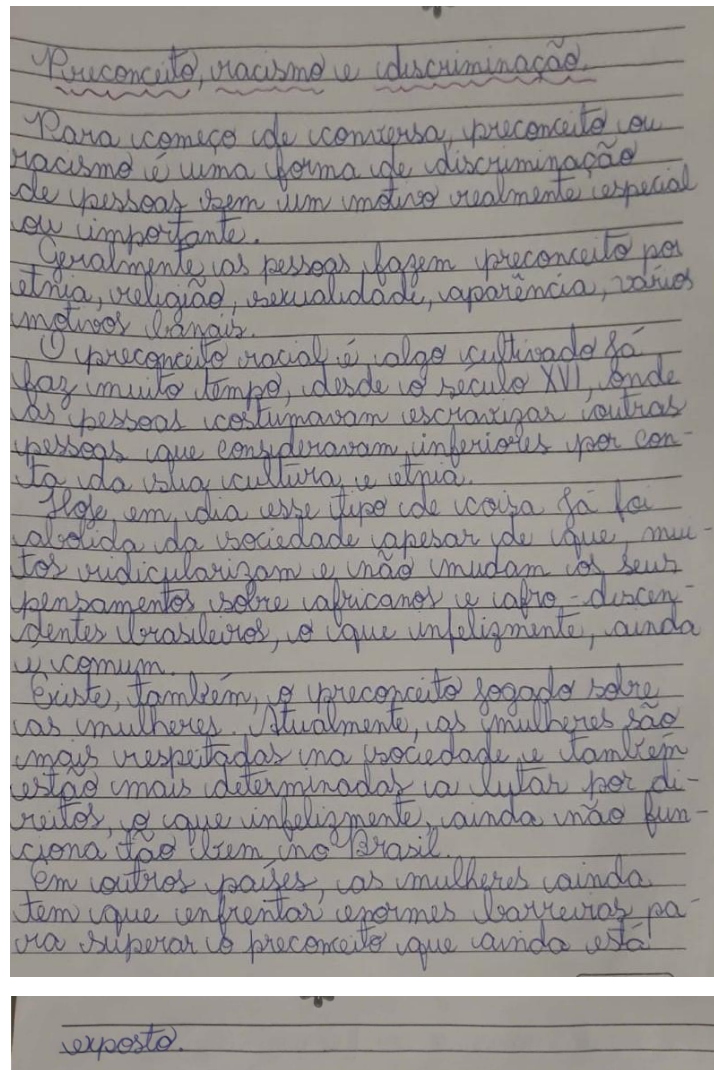 Preconceito, racismo e discriminação.
Para começo de conversa, preconceito ou
racismo é uma forma de discriminação
de pessoas sem um motivo realmente especial
ou importante.
Geralmente as pessoas fazem preconceito por
etnia, religião, sexualidade, aparência, vários
motivos banais.
O preconceito racial é algo cultivado já
faz muito tempo, desde o século XVI, onde
as pessoas costumavam escravizar outras
pessoas que consideravam inferiores por con-
ta da sua cultura e etnia.
Hoje em dia esse tipo de coisa já foi
abolida da sociedade apesar de que, mui-
tos ridicularizam e não mudam os seus
pensamentos sobre africanos e afro-descen-
dentes brasileiros, o que infelizmente, ainda
é comum.
Existe, também, o preconceito jogado sobre
as mulheres. Atualmente, as mulheres são
mais respeitadas na sociedade e também
estão mais determinadas a lutar por di-
reitos, o que infelizmente, ainda não fun-
ciona tão bem no Brasil.
Em outros países, as mulheres ainda
tem que enfrentar enormes barreiras pa-
ra superar o preconceito que ainda está
exposto.